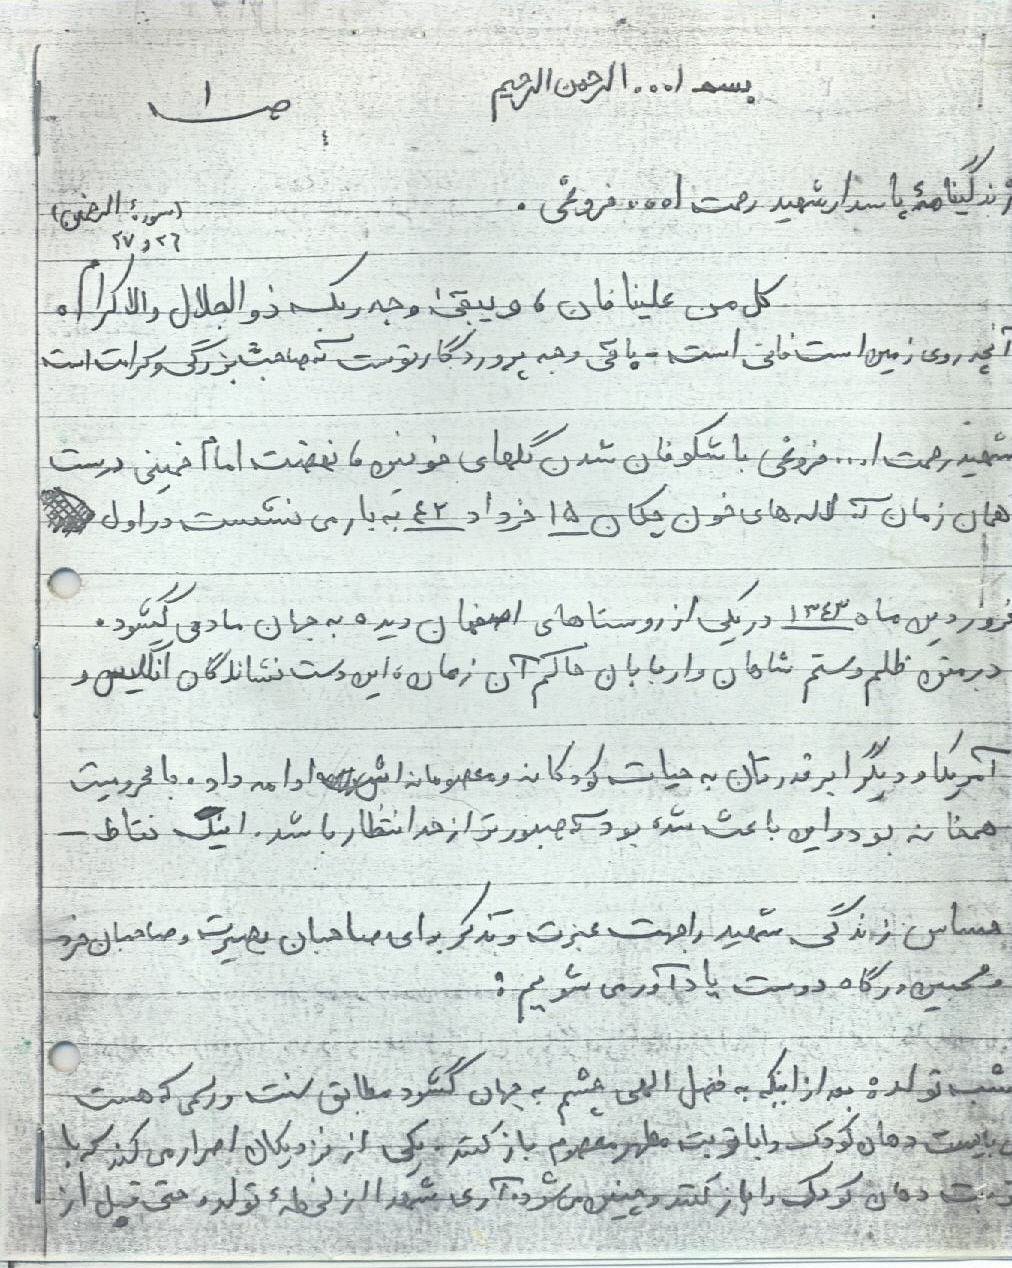 بسمه ا... الرحمن الرحیم
ص ۱
زندگینامهٔ پاسدار شهید رحمت ا... فروغی .
(سورهٔ الرحمن)
۲۶ و ۲۷
کل من علینا فان ، و یبقیٰ وجه ربک ذو الجلال والاکرام ه
آنچه روی زمین است فانی است - باقی وجه پروردگار توست که صاحب بزرگی و کرامت است
شهید رحمت ا... فروغی با شکوفان شدن گلهای خونین ، نهضت امام خمینی درست
همان زمان که لاله های خون چکان ۱۵ خرداد ۴۲ به بار می نشست در اول
فروردین ماه ۱۳۴۳ در یکی از روستاهای اصفهان دیده به جهان مادی گشود .
در متن ظلم و ستم شاهان و اربابان حاکم آن زمان ، این دست نشاندگان انگلیس و
آمریکا و دیگر ابرقدرتان به حیات کودکانه و معصومانه اش ادامه داد . با محرومیت
همخانه بود و این باعث شده بود که صبورتر از حد انتظار باشد . اینک نقاط -
حساس زندگی شهید را جهت عبرت و تذکر برای صاحبان بصیرت و صاحبان خرد
و محبین درگاه دوست یادآور می شویم :
شب تولد : بعد از اینکه به فضل الهی چشم به جهان گشود مطابق سنت و رسمی که هست
می بایست دهان کودک را با تربت مطهر معصوم باز کنند . یکی از نزدیکان اصرار می کند که با
تربت دهان کودک را باز کنند و چنین می شود . آری شهدا از لحظهٔ تولد و حتی قبل از